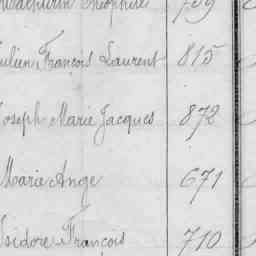 Mathurin Théophile 759
Julien François Laurent 815
Joseph Marie Jacques 872
Marie Ange 671
Isidore François 710